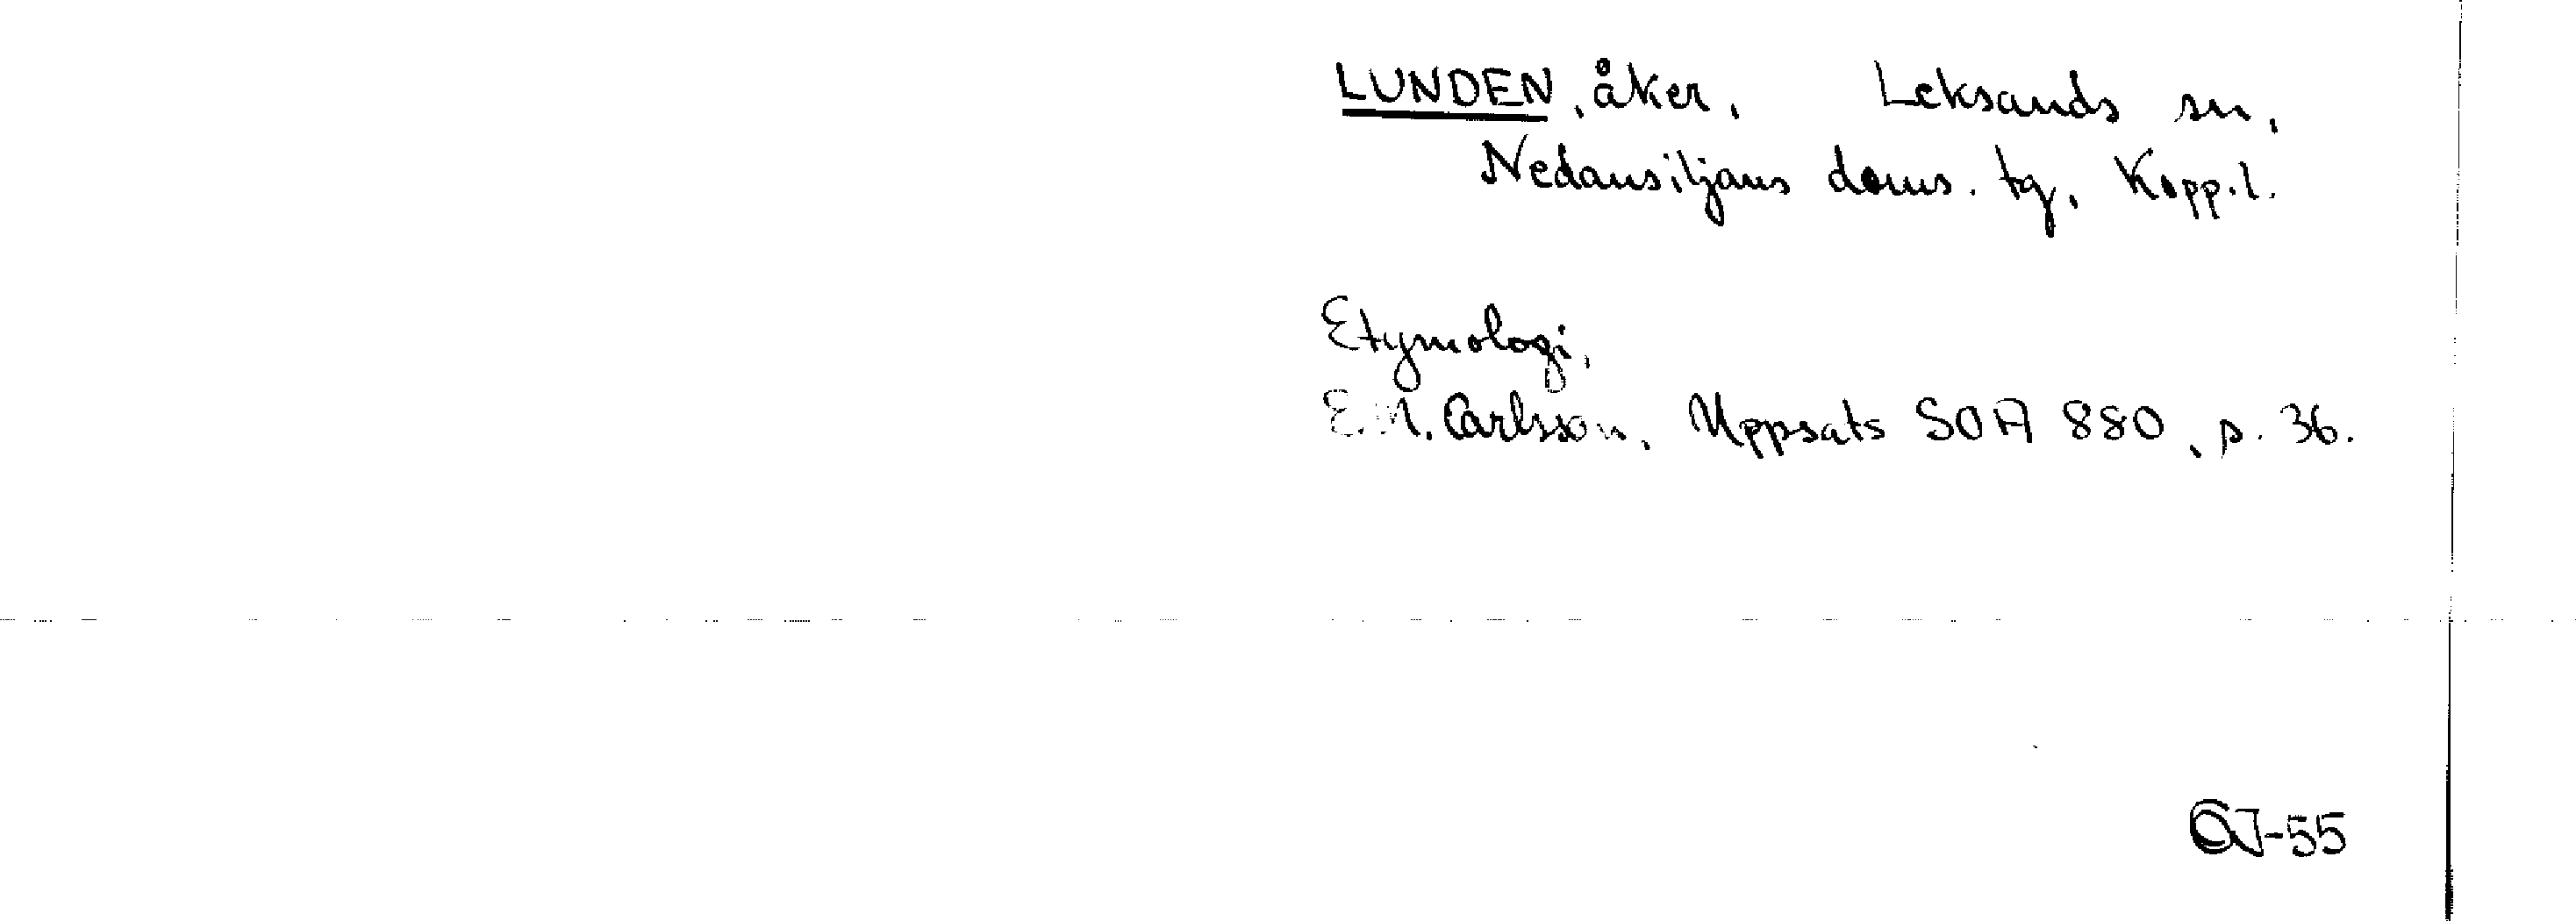 LUNDEN, åker, Leksands sn,
Nedansiljans doms. tg, Kopp.l.
Etymologi,
E.M. Carlsson, Uppsats SOA 880, s. 36.
-55